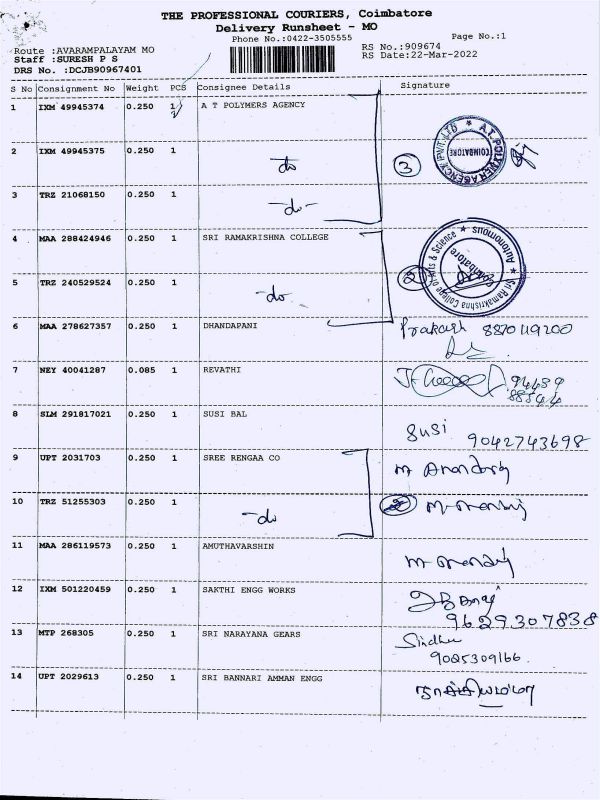 THE PROFESSIONAL COURIERS, Coimbatore
Delivery Runsheet - MO
Phone No.:0422-3505555
Page No.:1
Route :AVARAMPALAYAM MO
RS No.:909674
Staff :SURESH P S
RS Date:22-Mar-2022
DRS No. :DCJB90967401
S No Consignment No Weight PCS Consignee Details Signature
1 IXM 49945374 0.250 1 A T POLYMERS AGENCY
2 IXM 49945375 0.250 1 do 3
A.T. POLYMER AGENCY (P) LTD COIMBATORE
3 TRZ 21068150 0.250 1 -do-
4 MAA 288424946 0.250 1 SRI RAMAKRISHNA COLLEGE
Sri Ramakrishna College Of Arts & Science Autonomous Coimbatore
5 TRZ 240529524 0.250 1 -do 2
6 MAA 278627357 0.250 1 DHANDAPANI Prakash 8870119200
7 NEY 40041287 0.085 1 REVATHI 94439
88544
8 SLM 291817021 0.250 1 SUSI BAL Susi 9042743698
9 UPT 2031703 0.250 1 SREE RENGAA CO
10 TRZ 51255303 0.250 1 -do 2
11 MAA 286119573 0.250 1 AMUTHAVARSHIN
12 IXM 501220459 0.250 1 SAKTHI ENGG WORKS
9629307838
13 MTP 268305 0.250 1 SRI NARAYANA GEARS Sindhu
9025309166
14 UPT 2029613 0.250 1 SRI BANNARI AMMAN ENGG